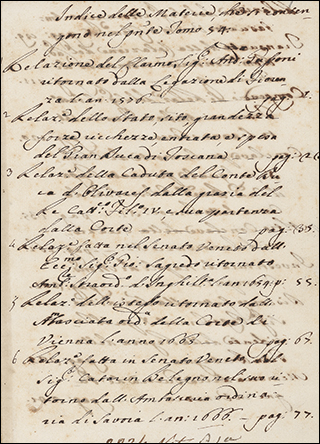 Indice delle Materie, che si conten-
gono nel pnte Tomo 54.
Relazione del Clarmo Sigr Ant: Tiepoli
ritornato dalla Legazione di
l'an: 1576. pag. 1.
2 Relaze dello Stato, sito, grandezza
forze, ricchezze, entrata, e spesa
del Gran Duca di Toscana pag: 26
3 Relaze della Caduta del Conte Du-
ca di Olivares dalla grazia del
Re Cattco Filo IV. e sua partenza
dalla Corte pag. 35.
4 Relaze fatta nel Senato Veneto dall'
Eccmo Sigr Gio: Sagredo ritornato
Ambr straord. d'Inghilta l'an: 1656. p: 55.
5 Relaz: dell'istesso ritornato dall'
Ambasciata ordra della Corte di
Vienna l'anno 1665. pag. 67.
6 Relaze fatta in Senato Veneto dal
Sigr Caterin Belegno nel suo ri-
torno dall'Ambasceria ordina-
ria di Savoia l'an: 1666. pag. 77.